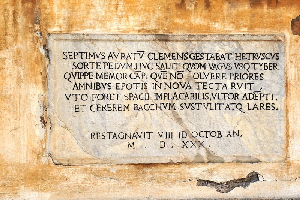 SEPTIMVS AVRATV̄ CLEMENS GESTABAT HETRVSCVS
SORTE PEDVM HVC SALIIT QVOM VAGVS VSQ TYBER
QVIPPE MEMOR CAP. QVĒ NŌ COLVERE PRIORES
AMNIBVS EPOTIS IN NOVA TECTA RVIT
VTQ FORET SPACII IMPLACABILIS VLTOR ADEPTI
ET CEREREM BACCHVM SVSTVLIT ATQ LARES.
RESTAGNAVIT VIII ID OCTOB AN.
M. D. XXX.